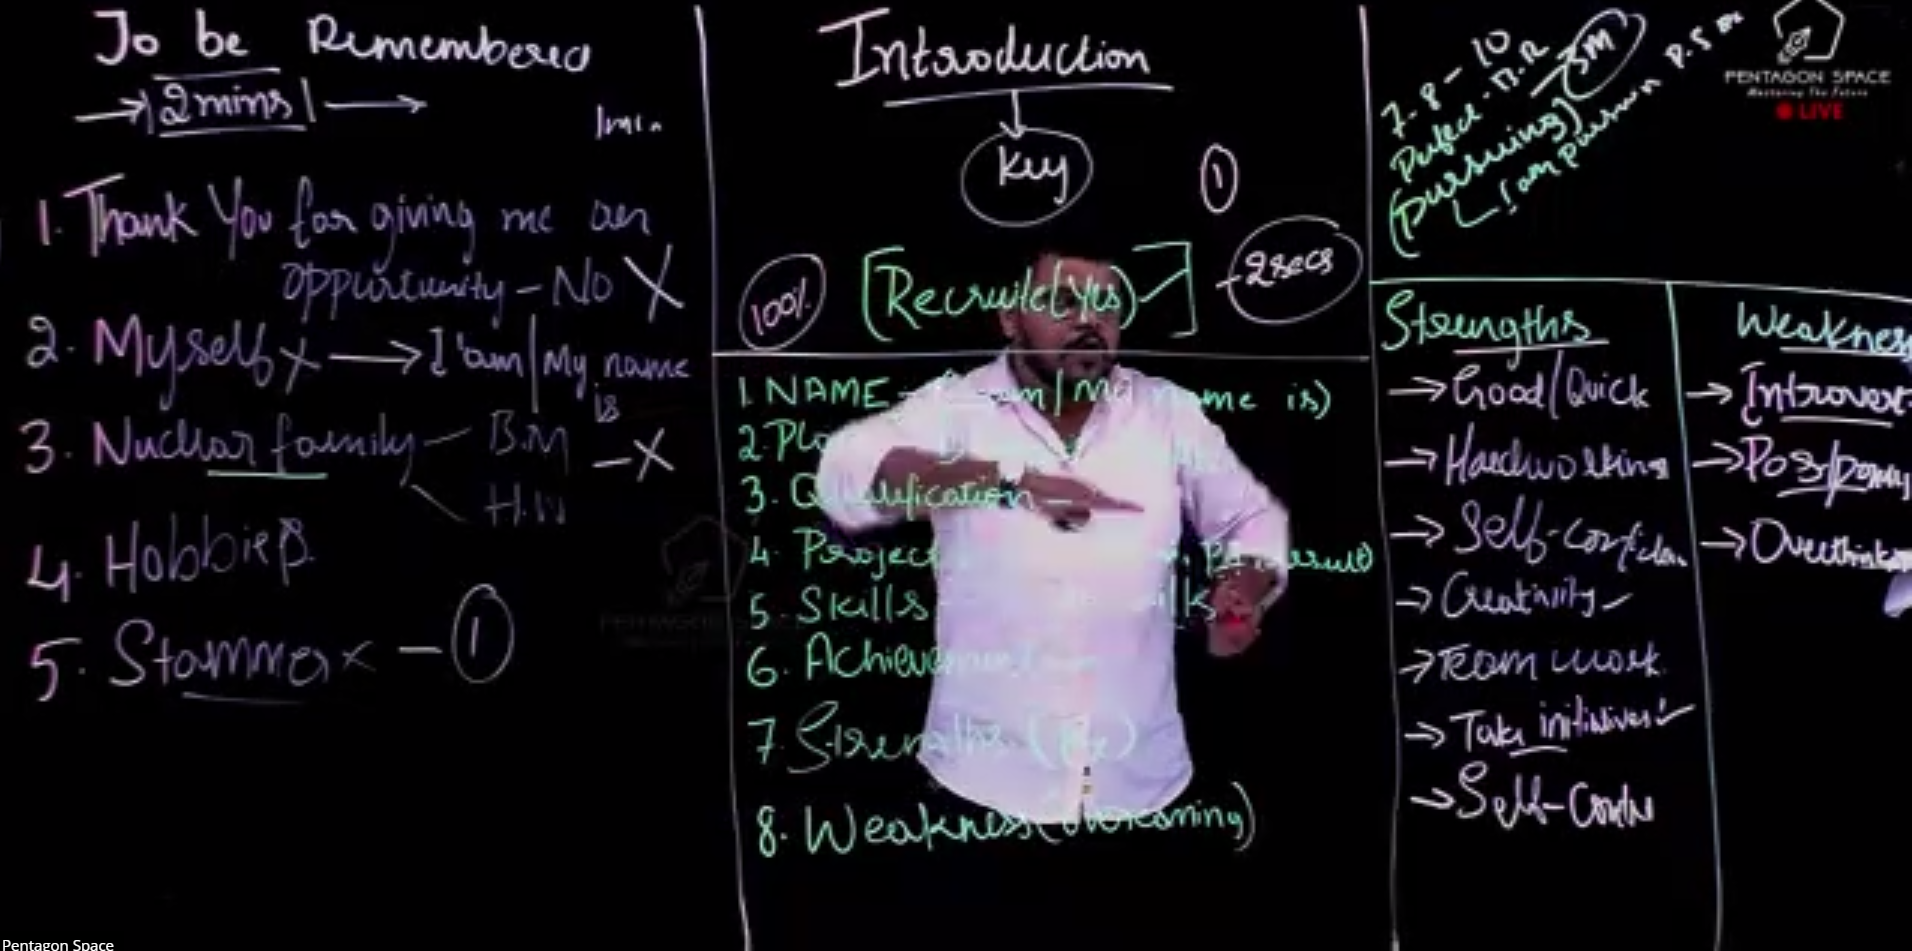 To be Remembered
→ | 2mins | →
1min.
1. Thank You for giving me an
oppurtunity - No X
2. Myself x → I'am / My name
is
3. Nuclear family - B.M - X
H.W
4. Hobbies.
5. Stammer x - 1
Introduction
Key
1
100%
[Recruite(Yes)]
- 2secs
1. NAME - am / My name is)
2.
3. Qualification -
4. Project
5. Skills -
6. Achievement -
7. Strengths
8. Weakness (overcoming)
7-8-10
Perfect - B.R
3M
(pursuing)
I am
PENTAGON SPACE
Mastering The Future
LIVE
Strengths
→ Good/Quick
→ Hardworking
→ Self-confiden
→ Creativity
→ Team work.
→ Take initiatives
→ Self-Contr
Weakness
→ Introvert
→ Overthink
Pentagon Space